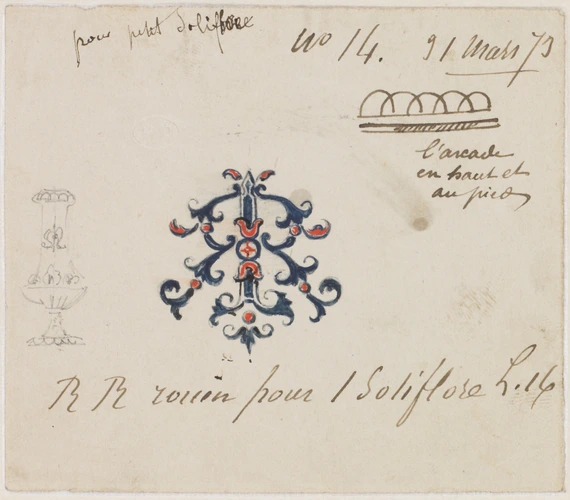 pour petit Soliflore
No 14. 31 Mars 73
l'arcade
en haut et
au pied
R R rouen pour 1 Soliflore L. 16